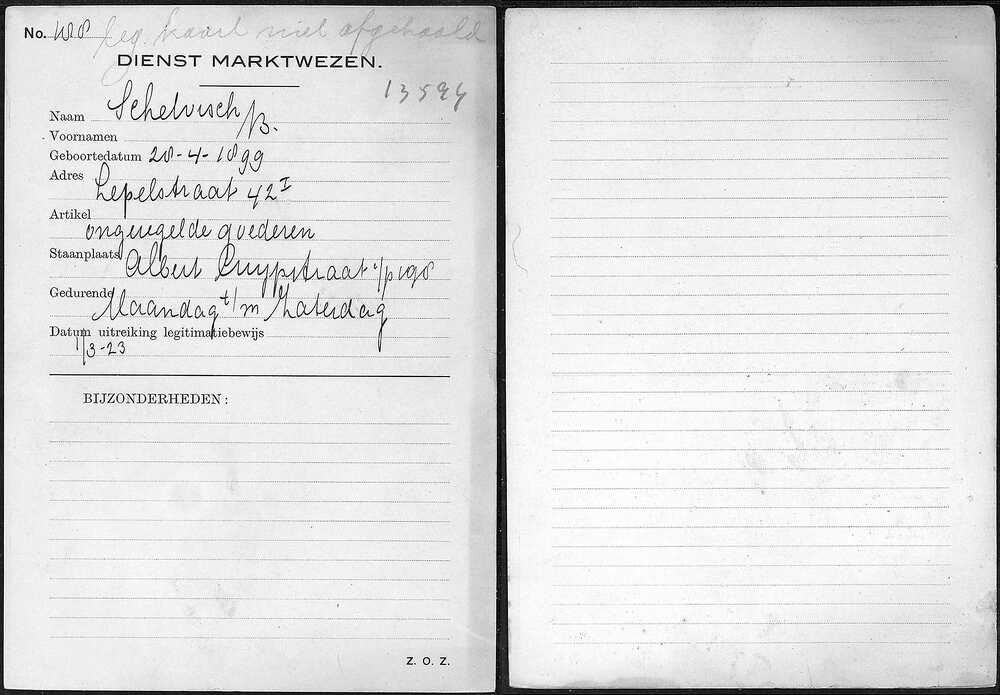 No. 128 leg. kaart niet afgehaald
DIENST MARKTWEZEN.
13594
Naam Schelvisch
Voornamen B.
Geboortedatum 28-4-1899
Adres Lepelstraat 42 I
Artikel ongeregelde goederen
Staanplaats Albert Cuypstraat t/o 198
Gedurende Maandag t/m Zaterdag
Datum uitreiking legitimatiebewijs
1/3-23
BIJZONDERHEDEN:
Z. O. Z.